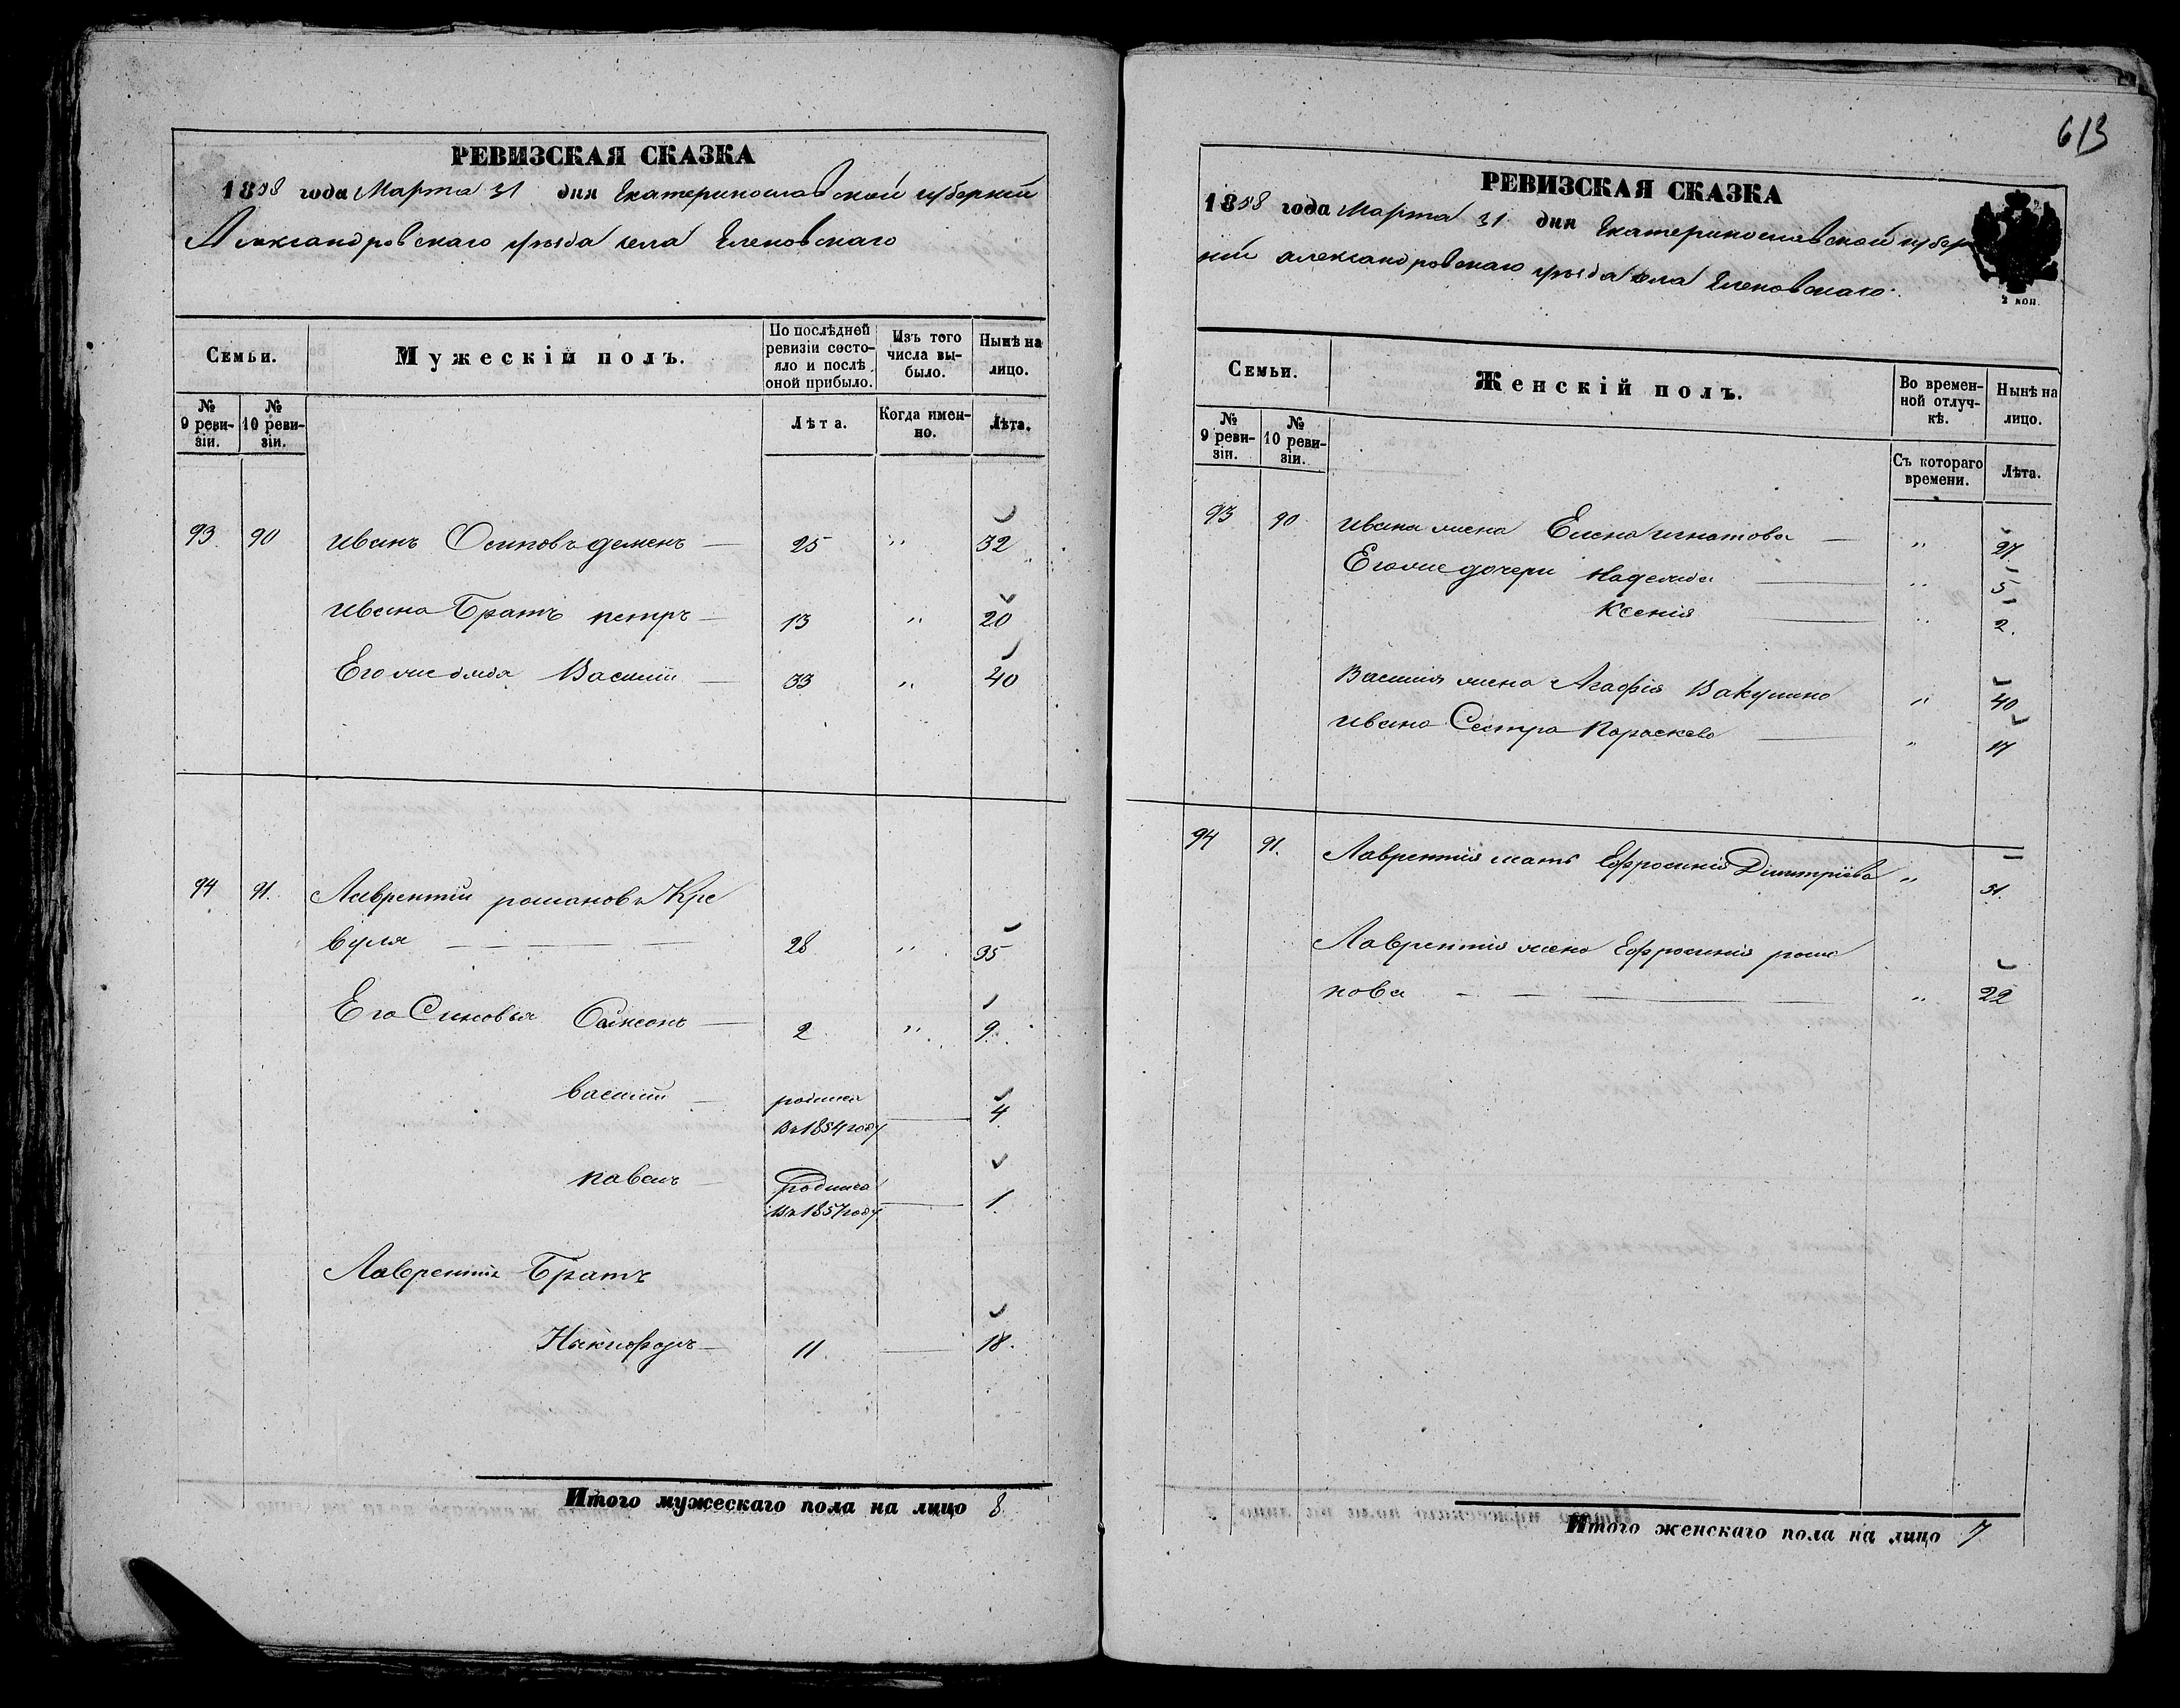 РЕВИЗСКАЯ СКАЗКА
1858 года Марта 31 дня Екатеринославской губерніи
Александровскаго уѣзда села Еленовскаго
Семьи.
Мужескій полъ.
По послѣдней ревизіи состояло и послѣ оной прибыло.
Изъ того числа выбыло.
Нынѣ на лицо.
№ 9 ревизіи.
№ 10 ревизіи.
Лѣта.
Когда именно.
Лѣта.
93. 90 Иванъ Осиповъ деменъ — 25 " 32
Ивана Братъ петръ — 13 " 20
Егоже дядя Василій — 33 " 40
94 91. Лаврентій романовъ Кре
вуля — — — — 28 " 35
Его Синовья Самсонъ — 2 " 9.
василій — родился
въ 1854 году — 4
павелъ — родился
въ 1857 году — 1.
Лаврентія Братъ
Никифоръ — 11. — 18.
Итого мужескаго пола на лицо 8
613
РЕВИЗСКАЯ СКАЗКА
1858 года Марта 31 дня Екатеринославской губер
ніи александровскаго уѣзда села Еленовскаго.
2 коп.
Семьи.
Женскій полъ.
Во временной отлучкѣ.
Нынѣ на лицо.
№ 9 ревизіи.
№ 10 ревизіи.
Съ котораго времени.
Лѣта.
93 90 Ивана жена Елена игнатова — " 27
Егоже дочери Надежда — " 5
Ксенія — " 2.
Василія жена Агафія Вакулина " 40
Ивана Сестра Параскева — " 17
94 91. Лаврентія мать Ефросинія Димитріева " 51.
Лаврентія жена Ефросинія рома
нова — — — " 22
Итого женскаго пола на лицо 7